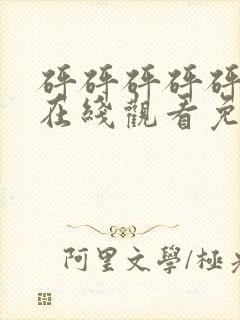 砰砰砰砰砰
在綫觀看免
阿里文學/極光